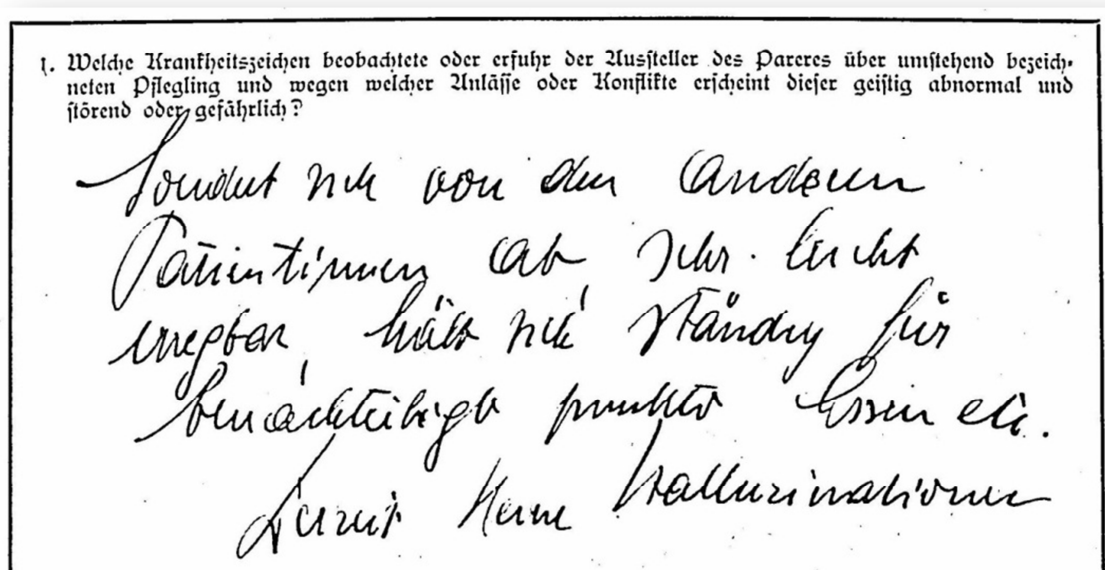 1. Welche Krankheitszeichen beobachtete oder erfuhr der Aussteller des Pareres über umstehend bezeich-
neten Pflegling und wegen welcher Anlässe oder Konflikte erscheint dieser geistig abnormal und
störend oder gefährlich?
Sondert sich von den anderen
Patientinnen ab, sehr leicht
erregbar, hält sich ständig für
benachteiligt punkto Essen etc.
Derzeit keine Halluzinationen